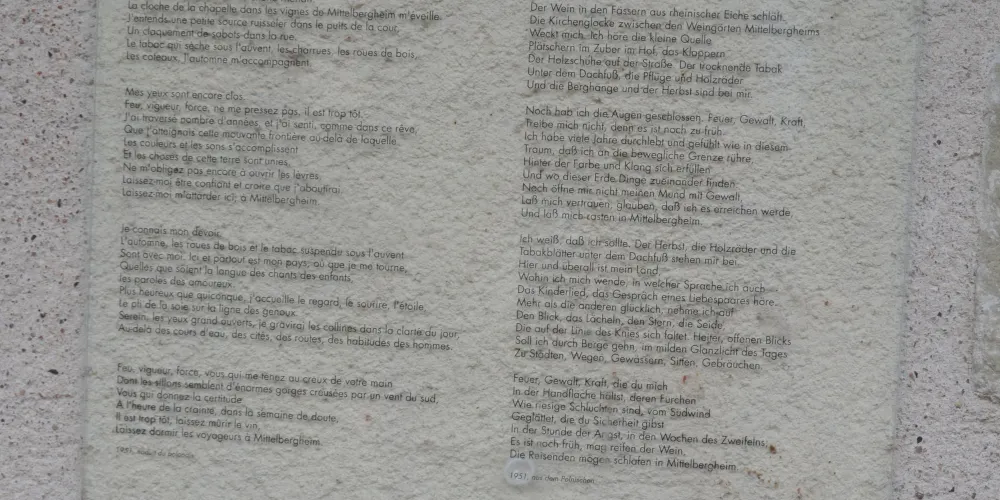 La cloche de la chapelle dans les vignes de Mittelbergheim m'éveille.
J'entends une petite source ruisseler dans le puits de la cour,
Un claquement de sabots dans la rue.
Le tabac qui sèche sous l'auvent, les charrues, les roues de bois,
Les coteaux, l'automne m'accompagnent.
Mes yeux sont encore clos.
Feu, vigueur, force, ne me pressez pas, il est trop tôt.
J'ai traversé nombre d'années, et j'ai senti, comme dans ce rêve,
Que j'atteignais cette mouvante frontière au-delà de laquelle
Les couleurs et les sons s'accomplissent
Et les choses de cette terre sont unies.
Ne m'obligez pas encore à ouvrir les lèvres.
Laissez-moi être confiant et croire que j'aboutirai.
Laissez-moi m'attarder ici, à Mittelbergheim.
Je connais mon devoir.
L'automne, les roues de bois et le tabac suspendu sous l'auvent
Sont avec moi. Ici et partout est mon pays, où que je me tourne,
Quelles que soient la langue des chants des enfants,
les paroles des amoureux.
Plus heureux que quiconque, j'accueille le regard, le sourire, l'étoile,
Le pli de la soie sur la ligne des genoux.
Serein, les yeux grand ouverts, je gravirai les collines dans la clarté du jour,
Au-delà des cours d'eau, des cités, des routes, des habitudes des hommes.
Feu, vigueur, force, vous qui me tenez au creux de votre main
Dont les sillons semblent d'énormes gorges creusées par un vent du sud,
Vous qui donnez la certitude
A l'heure de la crainte, dans la semaine de doute,
Il est trop tôt, laissez mûrir le vin,
Laissez dormir les voyageurs à Mittelbergheim.
1951, traduit du polonais
Der Wein in den Fässern aus rheinischer Eiche schläft.
Die Kirchenglocke zwischen den Weingärten Mittelbergheims
Weckt mich. Ich höre die kleine Quelle
Plätschern im Zuber im Hof, das Kloppern
Der Holzschuhe auf der Straße. Der trocknende Tabak
Unter dem Dachfuß, die Pflüge und Holzräder
Und die Berghänge und der Herbst sind bei mir.
Noch hab ich die Augen geschlossen. Feuer, Gewalt, Kraft,
Treibe mich nicht, denn es ist noch zu früh.
Ich habe viele Jahre durchlebt und gefühlt wie in diesem
Traum, daß ich an die bewegliche Grenze rühre,
Hinter der Farbe und Klang sich erfüllen
Und wo dieser Erde Dinge zueinander finden.
Noch öffne mir nicht meinen Mund mit Gewalt,
Laß mich vertrauen, glauben, daß ich es erreichen werde,
Und laß mich rasten in Mittelbergheim.
Ich weiß, daß ich sollte. Der Herbst, die Holzräder und die
Tabakblätter unter dem Dachfuß stehen mir bei.
Hier und überall ist mein Land,
Wohin ich mich wende, in welcher Sprache ich auch
Das Kinderlied, das Gespräch eines Liebespaares höre.
Mehr als die anderen glücklich, nehme ich auf
Den Blick, das Lächeln, den Stern, die Seide,
Die auf der Linie des Knies sich faltet. Heiter, offenen Blicks
Soll ich durch Berge gehn, im milden Glanzlicht des Tages
Zu Städten, Wegen, Gewässern, Sitten, Gebräuchen.
Feuer, Gewalt, Kraft, die du mich
In der Handfläche hältst, deren Furchen
Wie riesige Schluchten sind, vom Südwind
Geglättet, die du Sicherheit gibst
In der Stunde der Angst, in den Wochen des Zweifelns,
Es ist noch früh, mag reifen der Wein,
Die Reisenden mögen schlafen in Mittelbergheim
1951, aus dem Polnischen